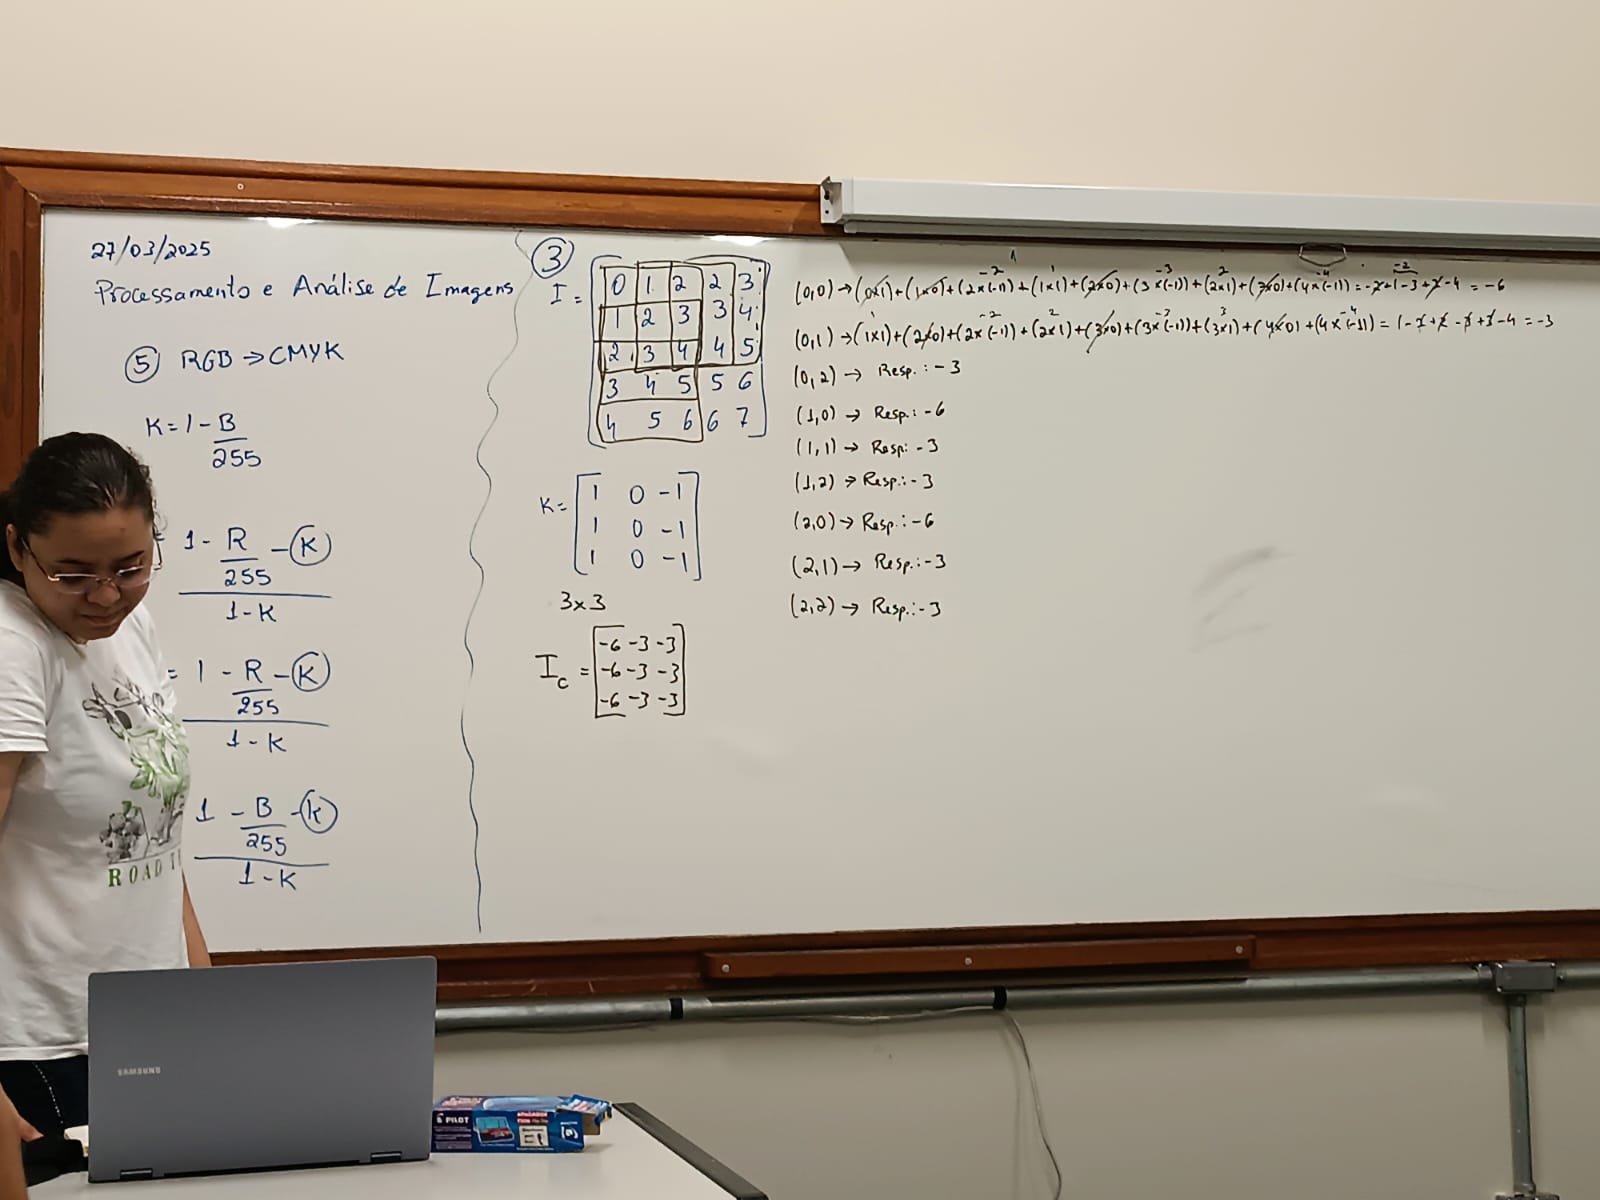 27/03/2025
Processamento e Análise de Imagens
5 RGB → CMYK
K = 1 - B
255
1 - R - K
255
1 - K
= 1 - R - K
255
1 - K
1 - B - K
255
1 - K
3
I =
0 1 2 2 3
1 2 3 3 4
2 3 4 4 5
3 4 5 5 6
4 5 6 6 7
K =
1 0 -1
1 0 -1
1 0 -1
3x3
Ic =
-6 -3 -3
-6 -3 -3
-6 -3 -3
(0,0) → (0x1)+(1x0)+(2x(-1))+(1x1)+(2x0)+(3x(-1))+(2x1)+(3x0)+(4x(-1)) = -2+1-3+2-4 = -6
(0,1) → (1x1)+(2x0)+(2x(-1))+(2x1)+(3x0)+(3x(-1))+(3x1)+(4x0)+(4x(-1)) = 1-2+2-3+3-4 = -3
(0,2) → Resp.: -3
(1,0) → Resp.: -6
(1,1) → Resp: -3
(1,2) → Resp.: -3
(2,0) → Resp.: -6
(2,1) → Resp.: -3
(2,2) → Resp.: -3
ROAD
SAMSUNG
PILOT